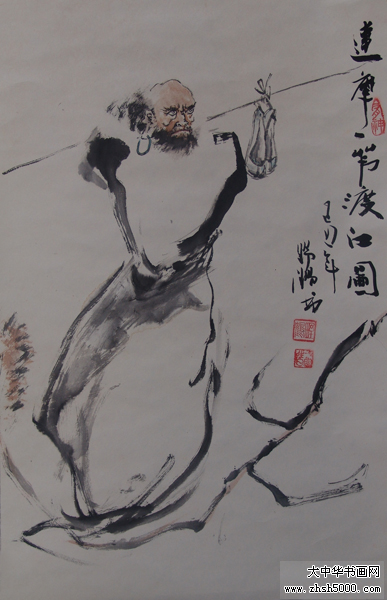 達摩一苇渡江圖
己丑年
大中华书画网
www.zhsh5000.com